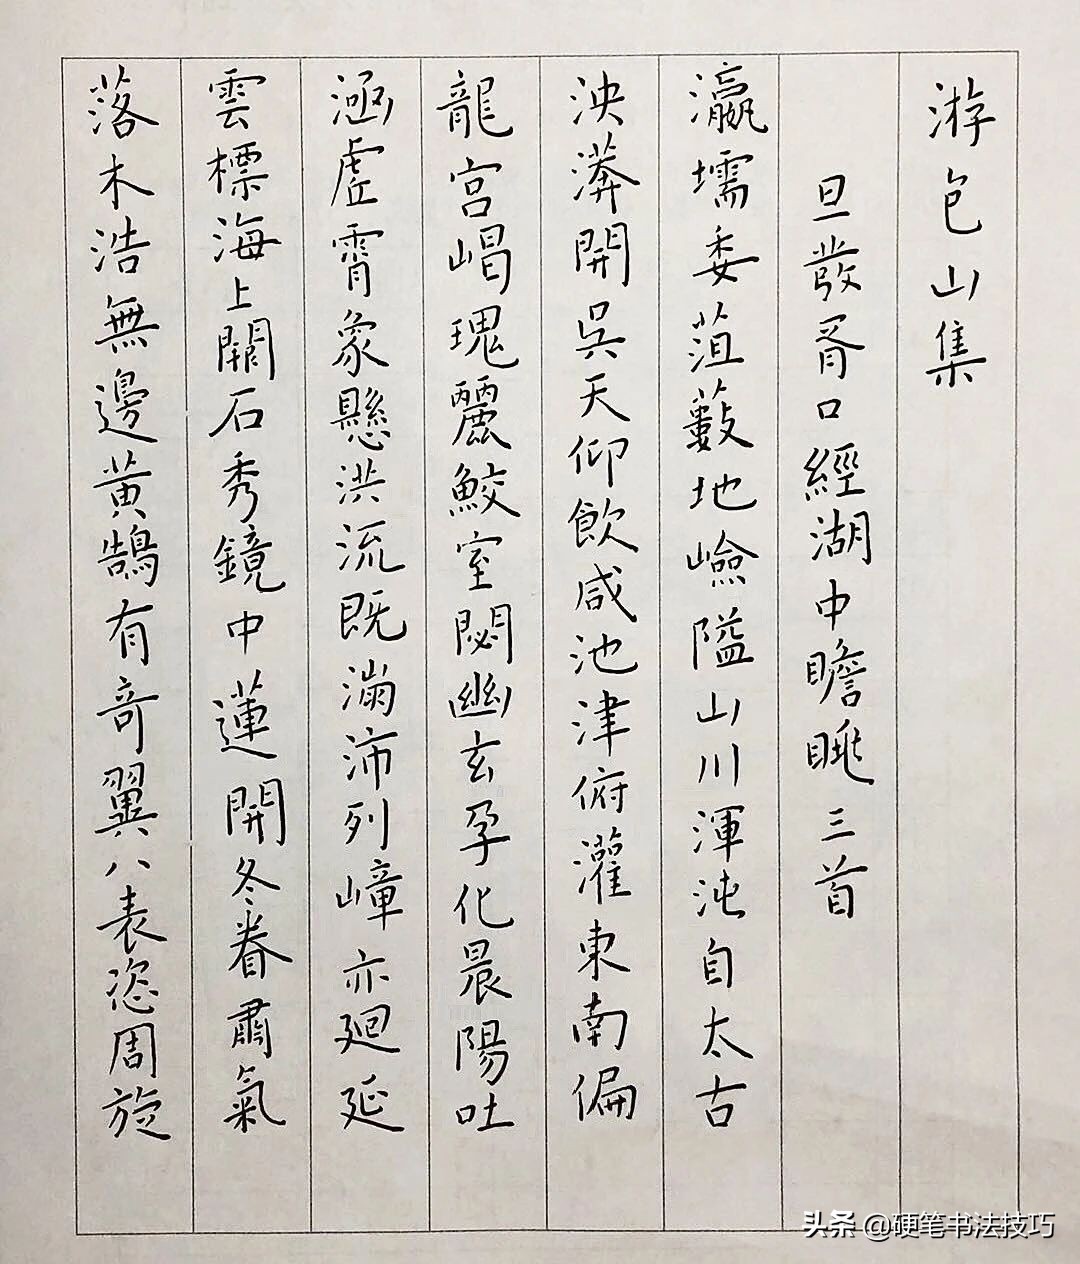 游包山集
旦發胥口經湖中瞻眺三首
瀛壖委菹藪地嶮隘山川渾沌自太古
泱漭開吳天仰飲咸池津俯灌東南偏
龍宮崼瑰麗鮫室閟幽玄孕化晨陽吐
涵虛霄象懸洪流既瀰沛列嶂亦廻延
雲標海上闕石秀鏡中蓮開冬眷肅氣
落木浩無邊黃鵠有奇翼八表恣周旋
头条 @硬笔书法技巧